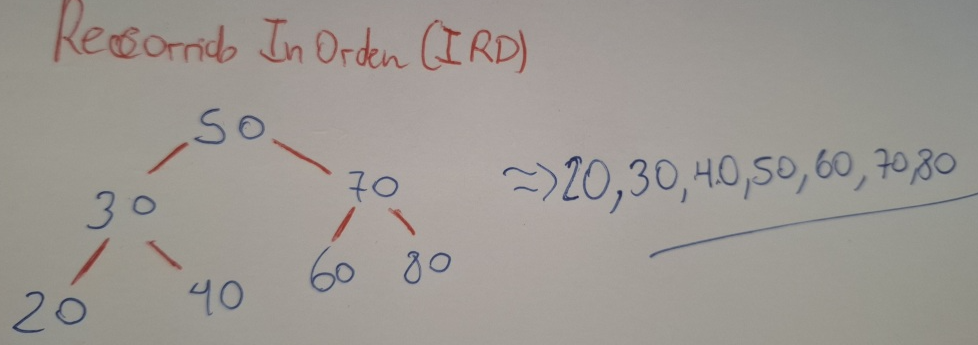 Recorrido In Orden (IRD)
50
30 70 ⇒ 20, 30, 40, 50, 60, 70, 80
20 40 60 80